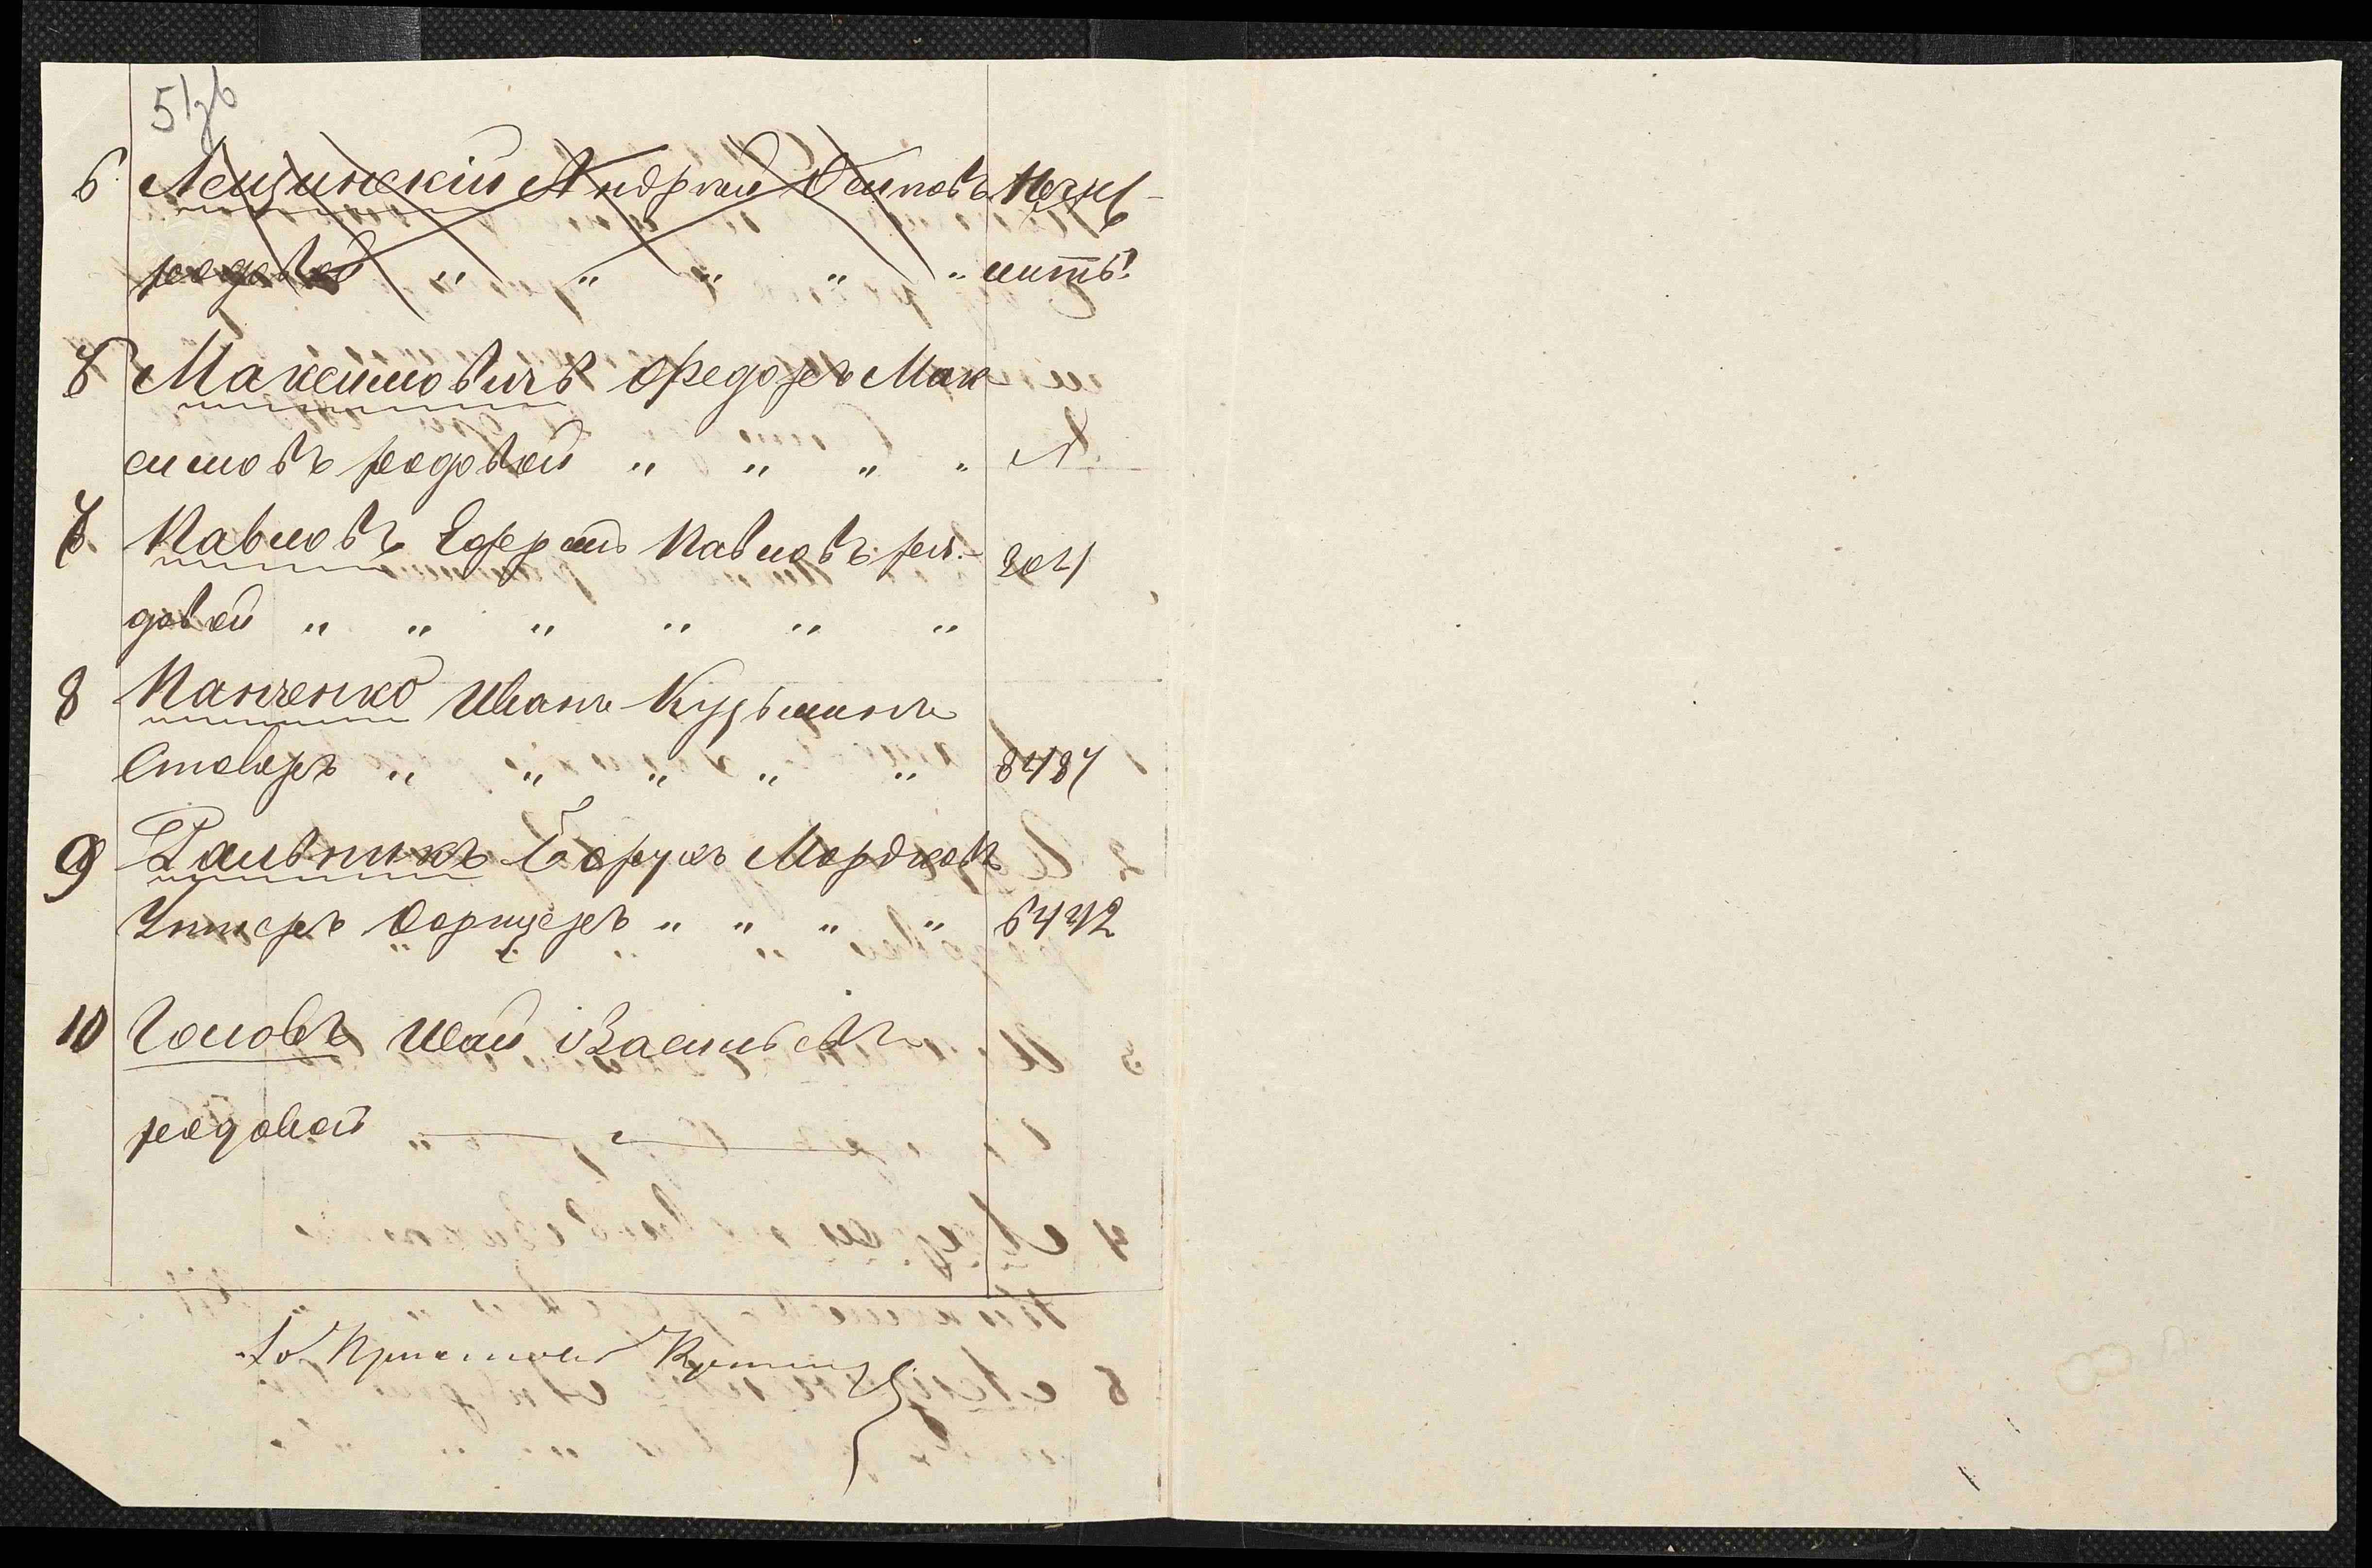 6 Лещинскій Андрей Осиповъ
рядовой " " " " "
6 Максимовичъ Федоръ Мак
симовъ рядовой " " " "
7 Павловъ Ефремъ Павловъ ря-
довой " " " " " "
8 Панченко Иванъ Кузьминъ
Столяръ " " " " " 8487
9 Рашвникъ Борухъ Мордковъ
Унтеръ Офицеръ " " " " 6442
10 Головъ Исай Васильевъ
рядовой